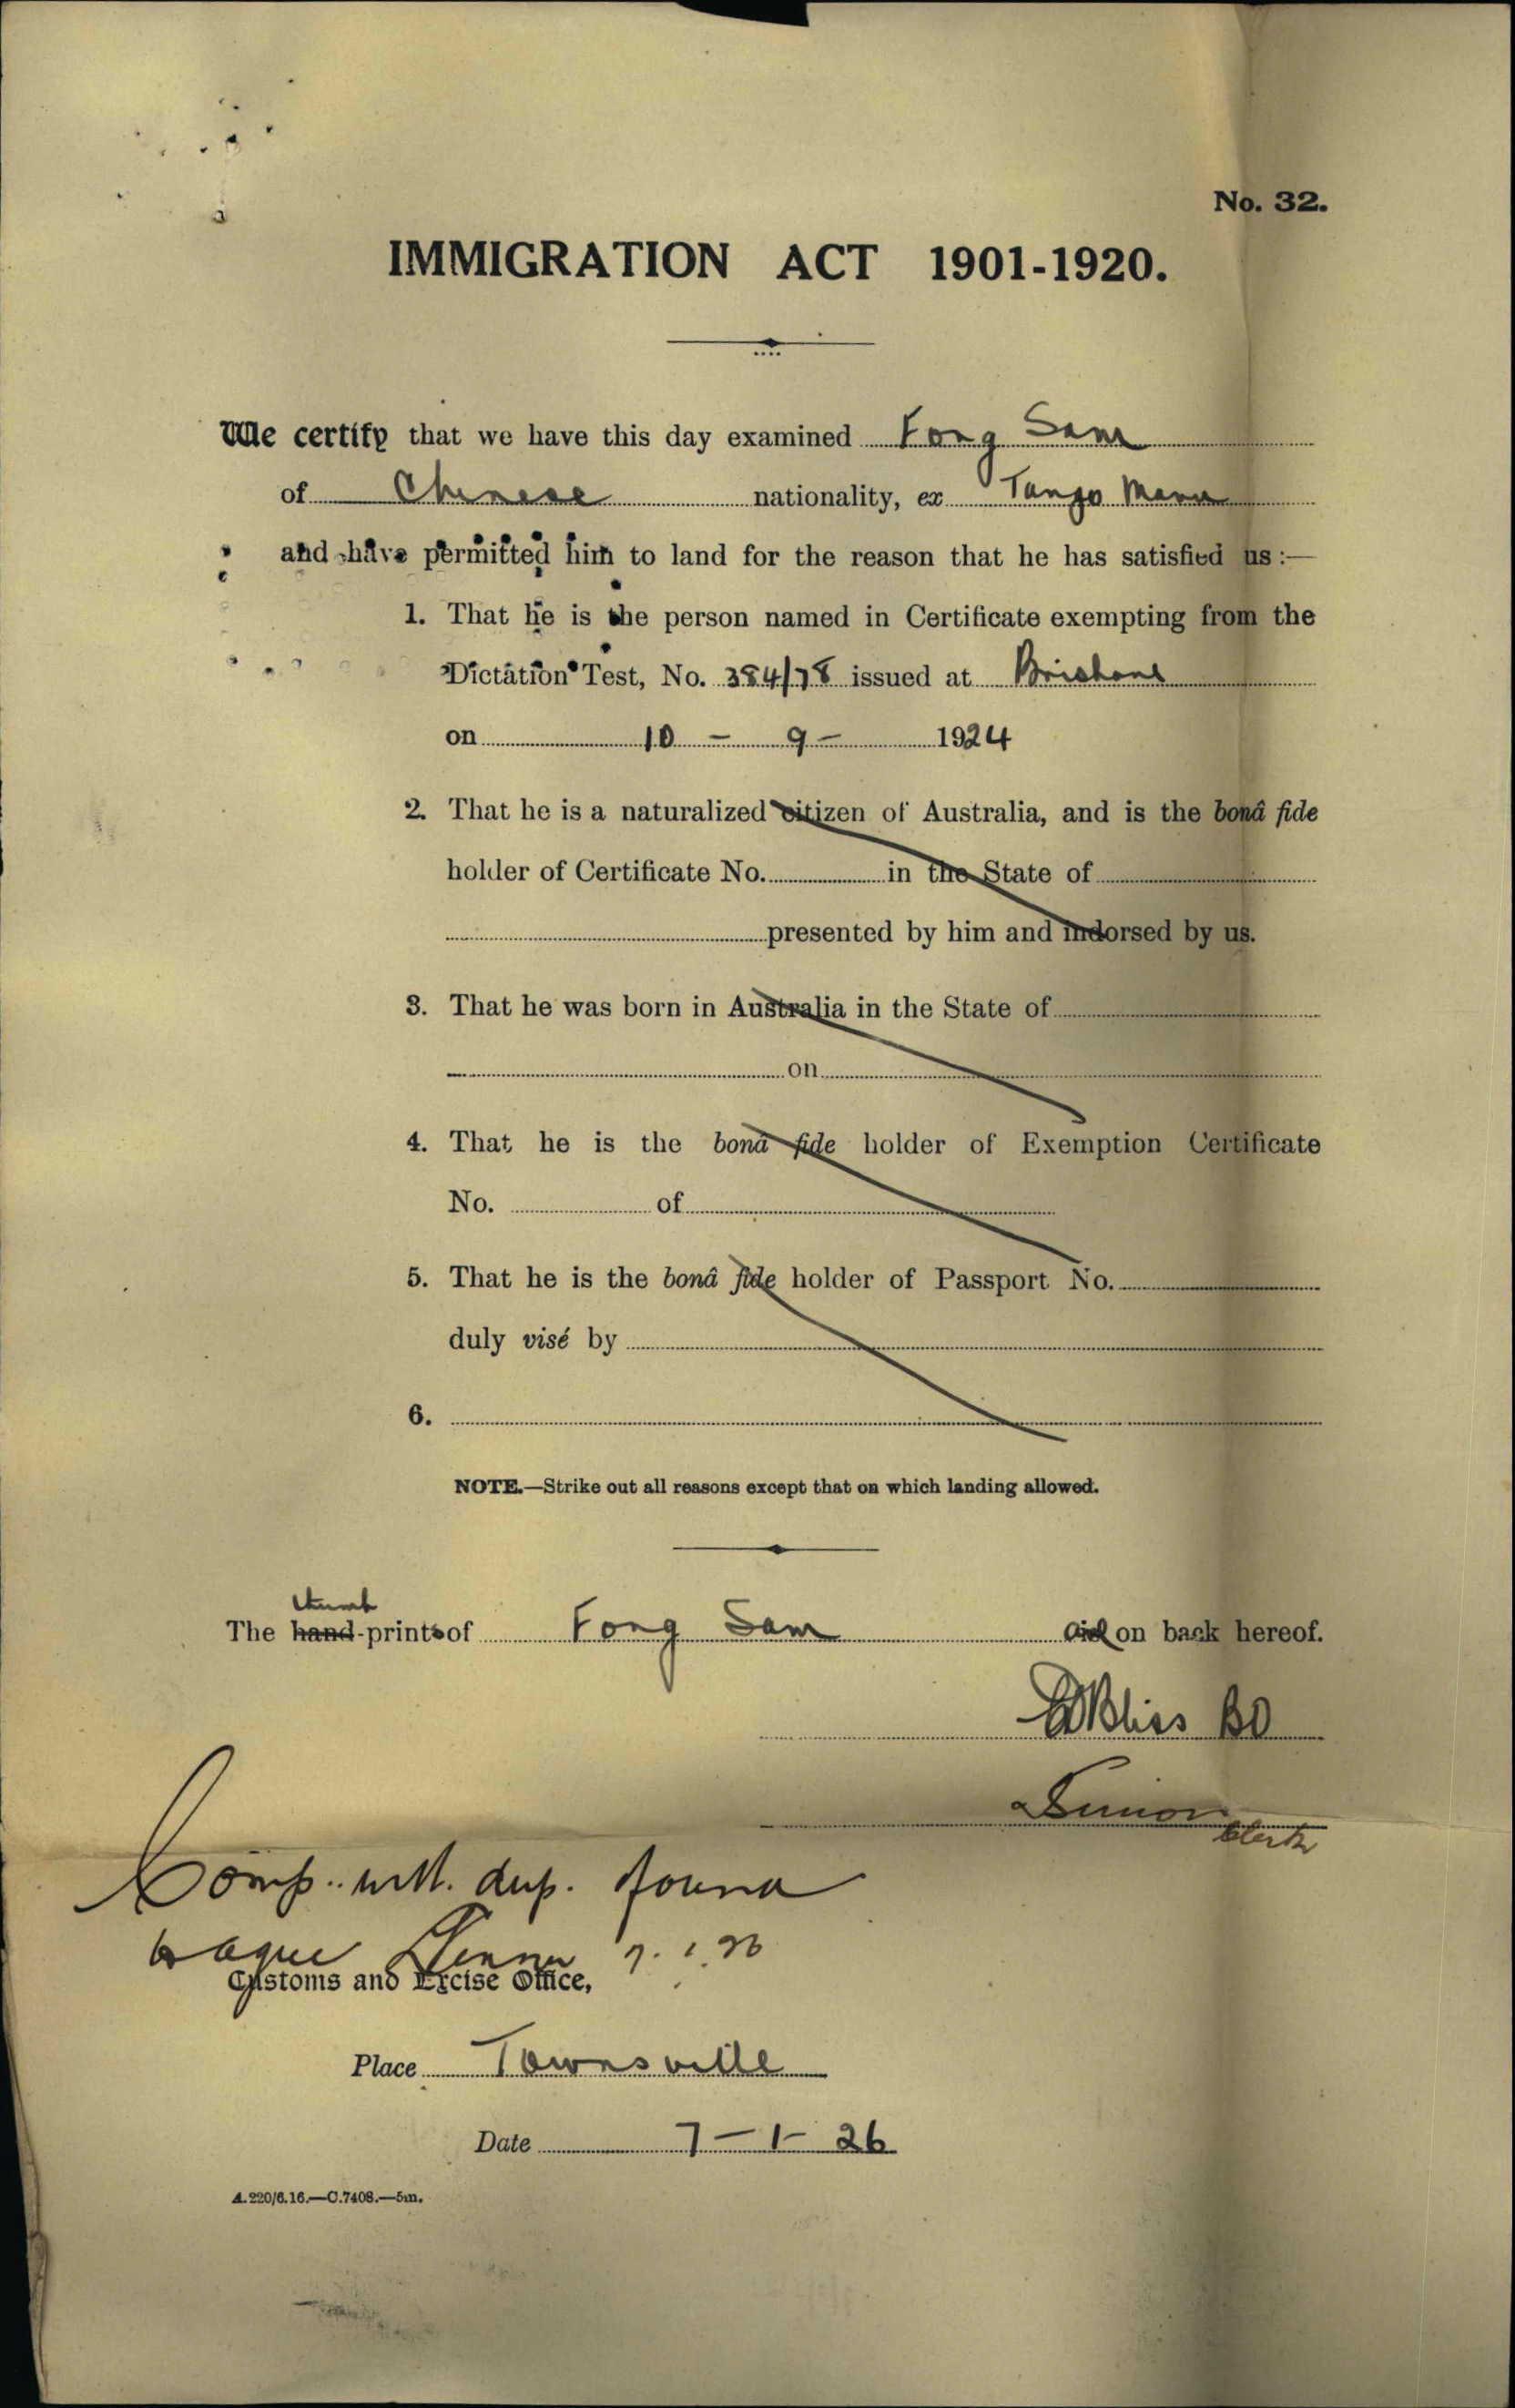 No. 32.
IMMIGRATION ACT 1901-1920.
We certify that we have this day examined Fong Sam
of Chinese nationality, ex Tango Maru
and have permitted him to land for the reason that he has satisfied us:—
1. That he is the person named in Certificate exempting from the
Dictation Test, No. 384/78 issued at Brisbane
on 10 - 9 - 1924
2. That he is a naturalized citizen of Australia, and is the bonâ fide
holder of Certificate No. in the State of
presented by him and indorsed by us.
3. That he was born in Australia in the State of
on
4. That he is the bonâ fide holder of Exemption Certificate
No. of
5. That he is the bonâ fide holder of Passport No.
duly visé by
6.
NOTE.—Strike out all reasons except that on which landing allowed.
thumb
The hand-prints of Fong Sam on back hereof.
Bliss BO
Clerk
Comp. with dup. found
7.1.26
Customs and Excise Office,
Place Townsville
Date 7-1-26
A.220/6.16.—C.7408.—5m.